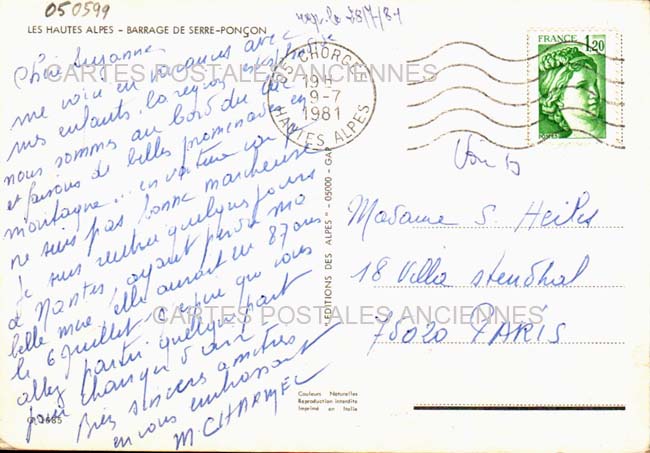 050599
rep. le 28/7/81
LES HAUTES ALPES - BARRAGE DE SERRE-PONÇON
Chère Suzanne
me voici en vacances avec
mes enfants. la région est
nous sommes au bord du lac
et faisons de belles promenades en
montagne... en voiture car je
ne suis pas bonne marcheuse
Je suis rentrée quelques jours
à Nantes, ayant perdu ma
belle mère, elle aurait eu 87 ans
le 6 juillet. J'espère que vous
allez partir quelque part
pour changer d'air,
Bien sincères amitiés
en vous embrassant
M. CHARMEL
05 CHORGES
9-7
1981
HAUTES ALPES
FRANCE
1,20
"EDITIONS DES ALPES" - 05000 - GAP
Madame S. Heiles
18 Villa Stendhal
75020 PARIS
Couleurs Naturelles
Reproduction interdite
Imprimé en Italie
CARTES POSTALES ANCIENNES
CARTES POSTALES ANCIENNES